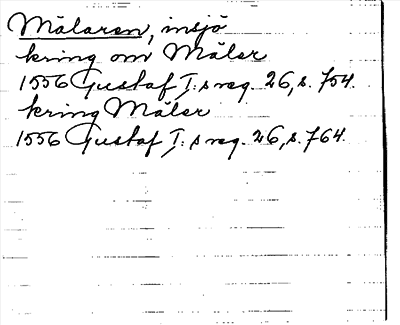 Mälaren, insjö
kring om Mäler
1556 Gustaf I:s reg. 26, s. 754.
kring Mäler
1556 Gustaf I:s reg. 26, s. 764.